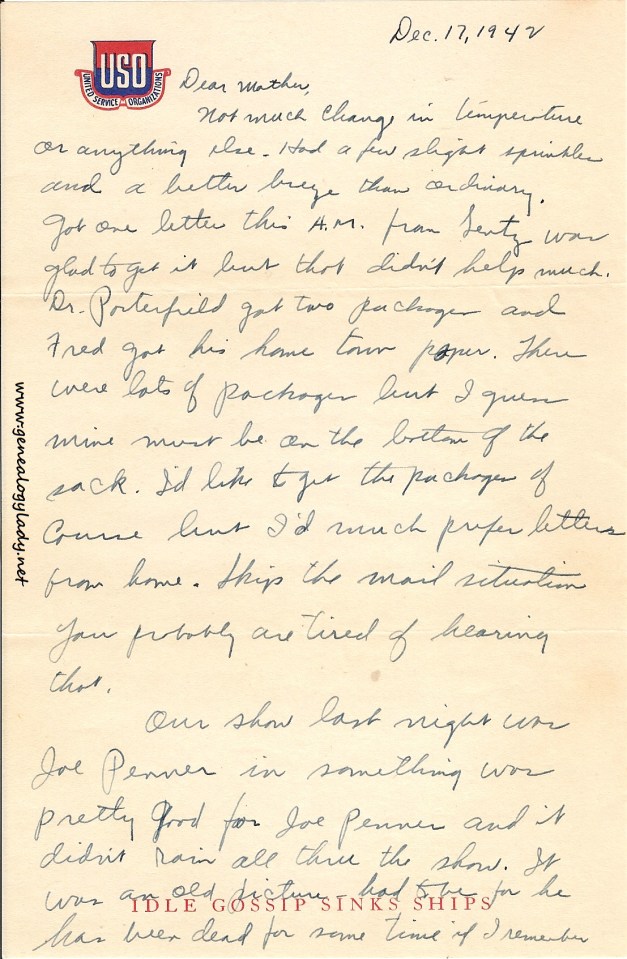 Dec. 17, 1942
USO
UNITED SERVICE ORGANIZATIONS
Dear Mother,
Not much change in temperature
or anything else. Had a few slight sprinkles
and a better breeze than ordinary.
Got one letter this A.M. from Lentz was
glad to get it but that didn't help much.
Dr. Porterfield got two packages and
Fred got his home town paper. There
were lots of packages but I guess
mine must be on the bottom of the
sack. I'd like to get the packages of
course but I'd much prefer letters
from home. Skip the mail situation
you probably are tired of hearing
that.
Our show last night was
Joe Penner in something was
pretty good for Joe Penner and it
didn't rain all thru the show. It
was an old picture - had to be for he
IDLE GOSSIP SINKS SHIPS
has been dead for some time if I remember
www.genealogylady.net